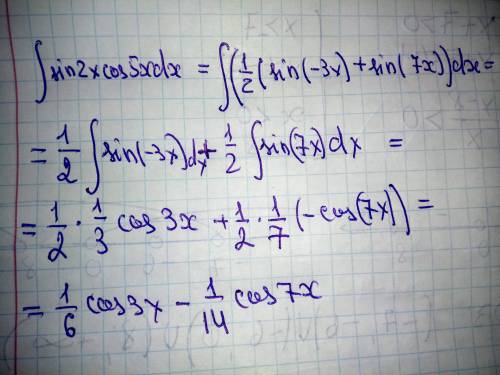 ∫sin2xcos5xdx = ∫(1/2(sin(-3x)+sin(7x))dx =
= 1/2 ∫sin(-3x)dx + 1/2 ∫sin(7x)dx =
= 1/2 · 1/3 cos3x + 1/2 · 1/7 (-cos(7x)) =
= 1/6 cos3x - 1/14 cos7x